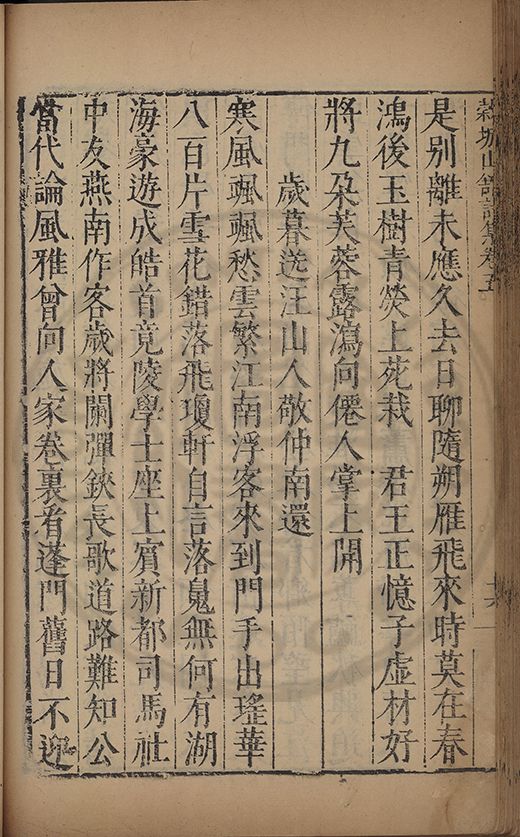 穀城山館詩集卷五
是别離未應久去日聊隨朔雁飛來時莫在春
鴻後玉樹青熒上苑栽君王正憶子虛材好
將九朶芙蓉露瀉向僊人掌上開
歲暮送汪山人敬仲南還
寒風颯颯愁雲繁江南浮客來到門手出瑤華
八百片雪花錯落飛瓊軒自言落魄無何有湖
海豪遊成皓首竟陵學士座上賓新都司馬社
中友燕南作客歲將闌彈鋏長歌道路難知公
當代論風雅曾向人家卷裏看蓬門舊日不迎